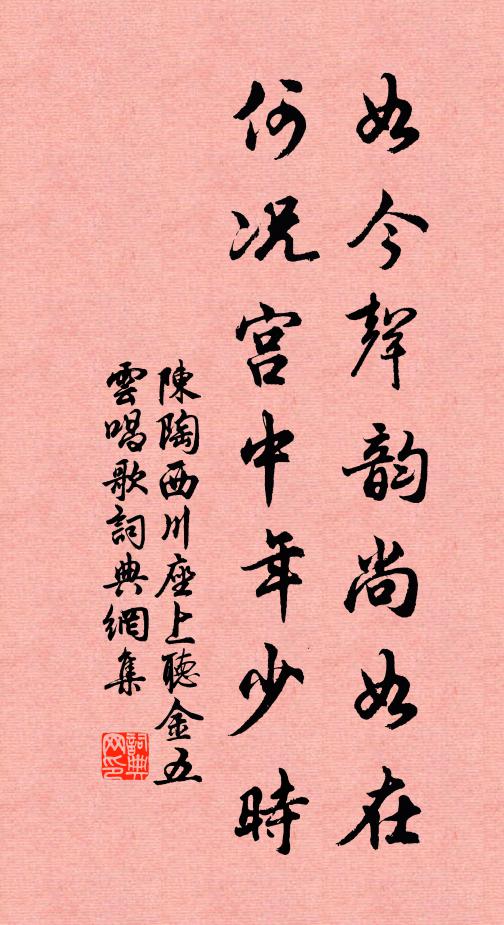 如今聲韵尚如在
何况宮中年少時
陳陶西川座上聽金五
雲唱歌詞典網集
詞典网印